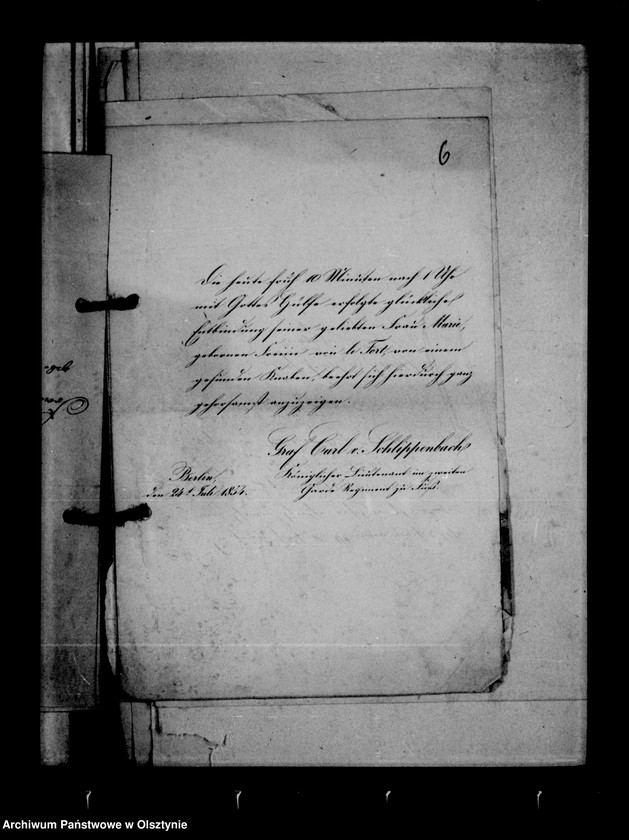 6
Die heute früh 10 Minuten nach 1 Uhr
mit Gottes Hülfe erfolgte glückliche
Entbindung seiner geliebten Frau Marie,
gebornen Freiin von le Fort, von einem
gesunden Knaben, beehrt sich hierdurch ganz
gehorsamst anzuzeigen.
Graf Carl v. Schlippenbach
Königlicher Lieutenant im zweiten
Garde Regiment zu Fuß.
Berlin,
den 24t. Juli 1854.
Archiwum Państwowe w Olsztynie